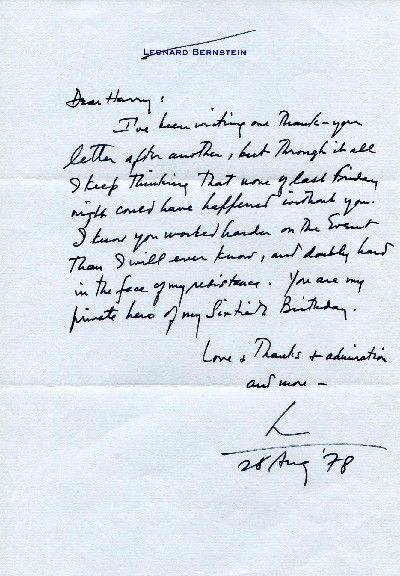 LEONARD BERNSTEIN
Dear Harry:
I've been writing one Thank-you
letter after another, but through it all
I keep thinking that none of last Friday
night could have happened without you.
I know you worked harder on the Event
than I will ever know, and doubly hard
in the face of my resistance. You are my
private hero of my Sixtieth Birthday.
Love & Thanks & admiration
and more –
L
28 Aug '78